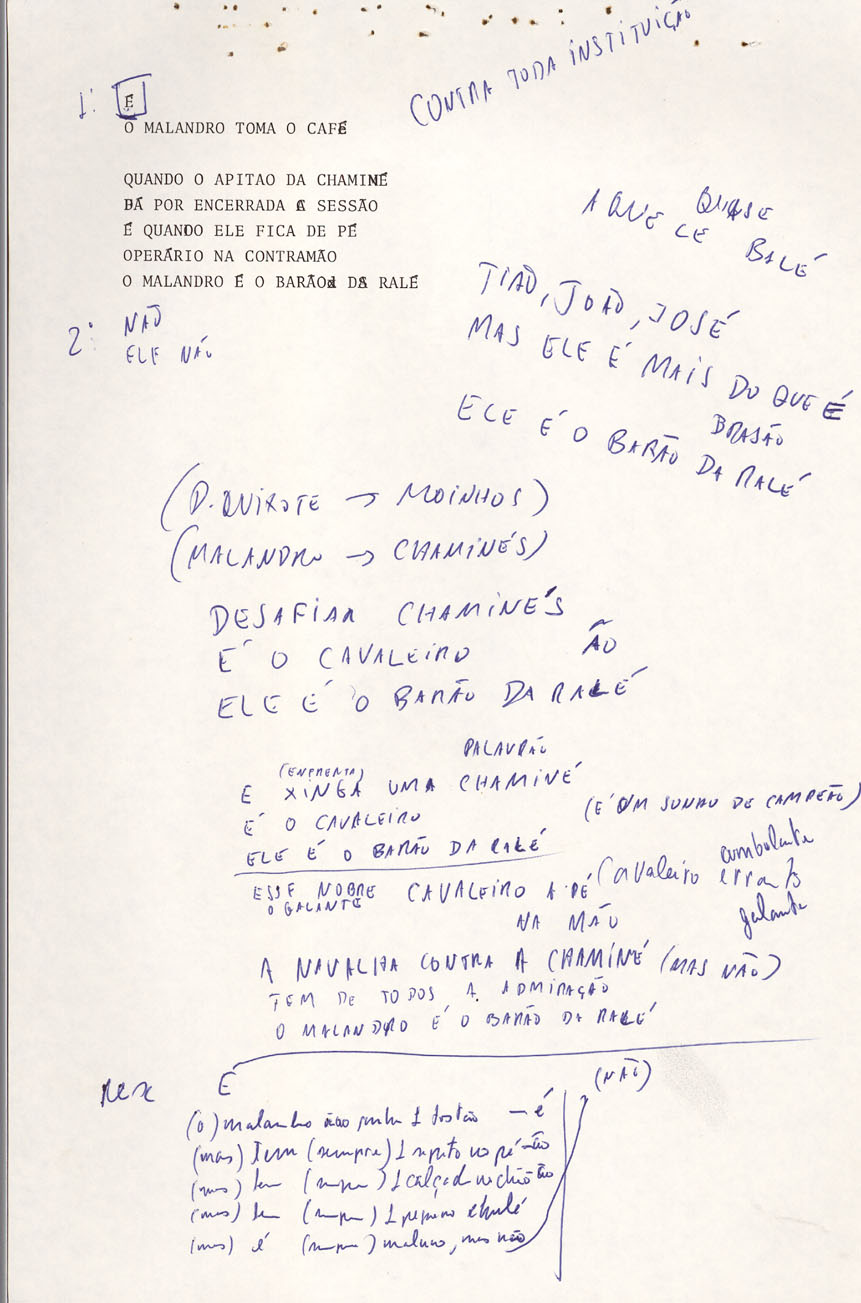 CONTRA TODA INSTITUIÇÃO
1º É
O MALANDRO TOMA O CAFÉ
QUANDO O APITAO DA CHAMINÉ
DÁ POR ENCERRADA A SESSÃO
É QUANDO ELE FICA DE PÉ
OPERÁRIO NA CONTRAMÃO
O MALANDRO É O BARÃO DA RALÉ
2º NÃO
ELE NÃO
AQUELE QUASE BALÉ
TIÃO, JOÃO, JOSÉ
MAS ELE É MAIS DO QUE É
BRASÃO
ELE É O BARÃO DA RALÉ
(D. QUIXOTE → MOINHOS)
(MALANDRO → CHAMINÉS)
DESAFIAR CHAMINÉS
É O CAVALEIRO ÃO
ELE É O BARÃO DA RALÉ
PALAVRÃO
(ENFRENTA)
E XINGA UMA CHAMINÉ
É O CAVALEIRO (É UM SONHO DE CAMPEÃO)
ELE É O BARÃO DA RALÉ
ESSE NOBRE CAVALEIRO A PÉ (Cavaleiro ambulante
O GALANTE errante
galante
NA MÃO
A NAVALHA CONTRA A CHAMINÉ (MAS NÃO)
TEM DE TODOS A ADMIRAÇÃO
O MALANDRO É O BARÃO DA RALÉ
É (NÃO)
(o) malandro não ganha 1 tostão — é
(mas) tem (sempre) 1 sapato no pé — ão
(mas) tem (sempre) 1 calçado no chão
(mas) tem (sempre) 1 pequeno chulé
(mas) é (sempre) maluco, mas não